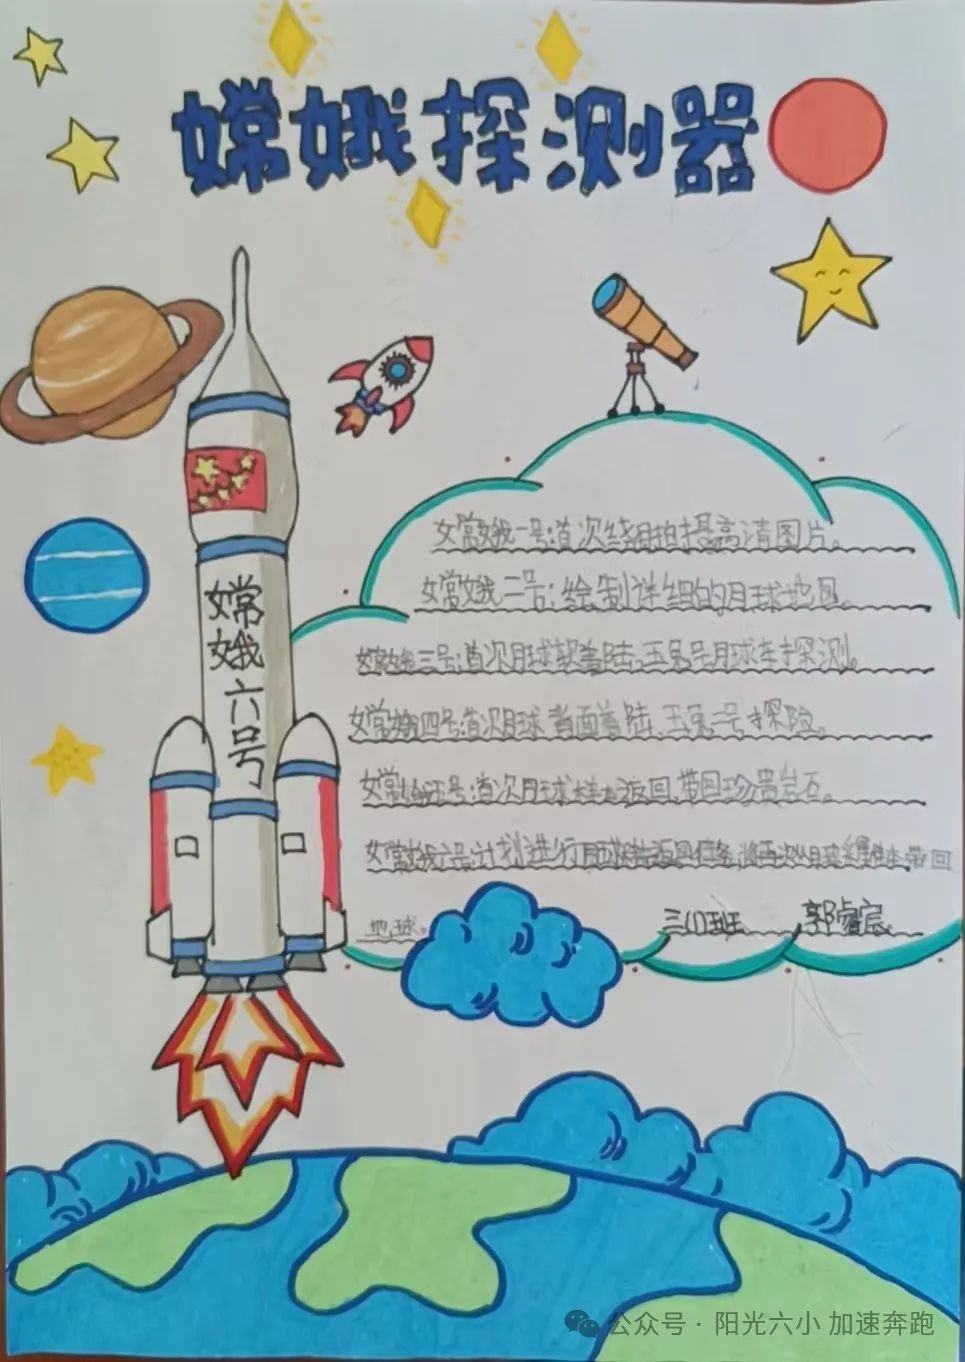 嫦娥探测器
嫦娥六号
嫦娥一号:首次绕月拍摄高清图片。
嫦娥二号:绘制详细的月球地图。
嫦娥三号:首次月球软着陆,玉兔号月球车探测。
嫦娥四号:首次月球背面着陆,玉兔二号探险。
嫦娥五号:首次月球土返回,带回珍贵岩石。
嫦娥六号:计划进行月球背返回任务,将再次从月球样本带回
地球。
三(1)班 郭睿宸
公众号·阳光六小 加速奔跑